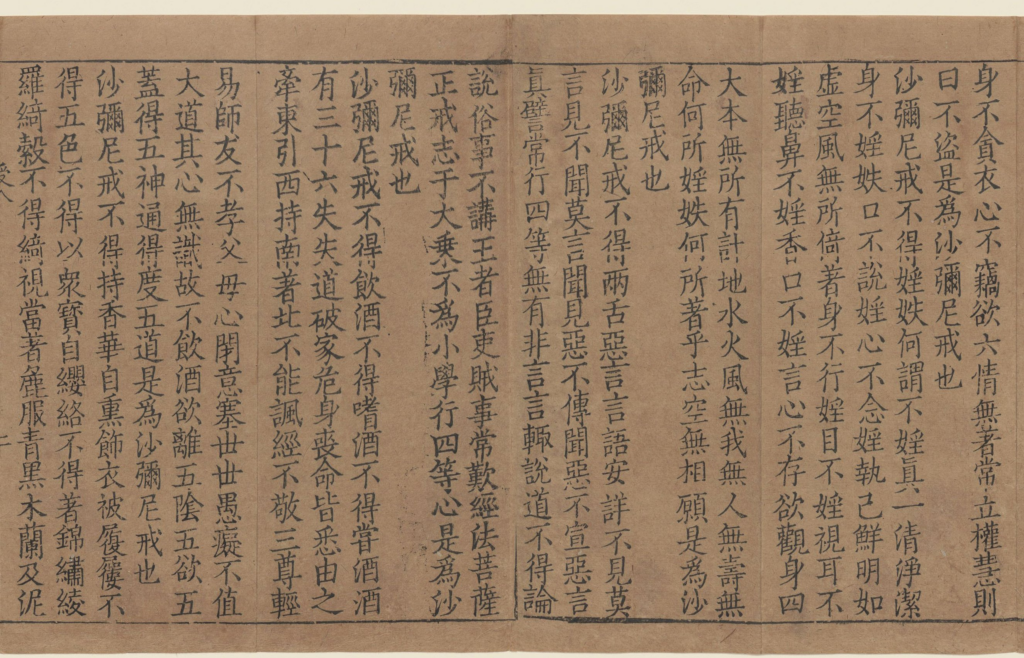 身不貪衣心不竊欲六情無著常立權慧則
曰不盜是為沙彌尼戒也
沙彌尼戒不得婬妷何謂不婬真一清淨潔
身不婬妷口不說婬心不念婬執己鮮明如
虛空風無所倚著身不行婬目不婬視耳不
婬聽鼻不婬香口不婬言心不存欲觀身四
大本無所有計地水火風無我無人無壽無
命何所婬妷何所著乎志空無相願是為沙
彌尼戒也
沙彌尼戒不得兩舌惡言言語安詳不見莫
言見不聞莫言聞見惡不傳聞惡不宣惡言
真譬常行四等無有非言言輒說道不得論
說俗事不講王者臣吏賊事常歎經法菩薩
正戒志于大乗不為小學行四等心是為沙
彌尼戒也
沙彌尼戒不得飲酒不得嗜酒不得嘗酒酒
有三十六失失道破家危身喪命皆悉由之
牽東引西持南著北不能諷經不敬三尊輕
易師友不孝父母心閉意塞世世愚癡不值
大道其心無識故不飲酒欲離五陰五欲五
蓋得五神通得度五道是為沙彌尼戒也
沙彌尼戒不得持香華自熏飾衣被履屨不
得五色不得以衆寶自纓絡不得著錦繡綾
羅綺縠不得綺視當著麁服青黑木蘭及泥